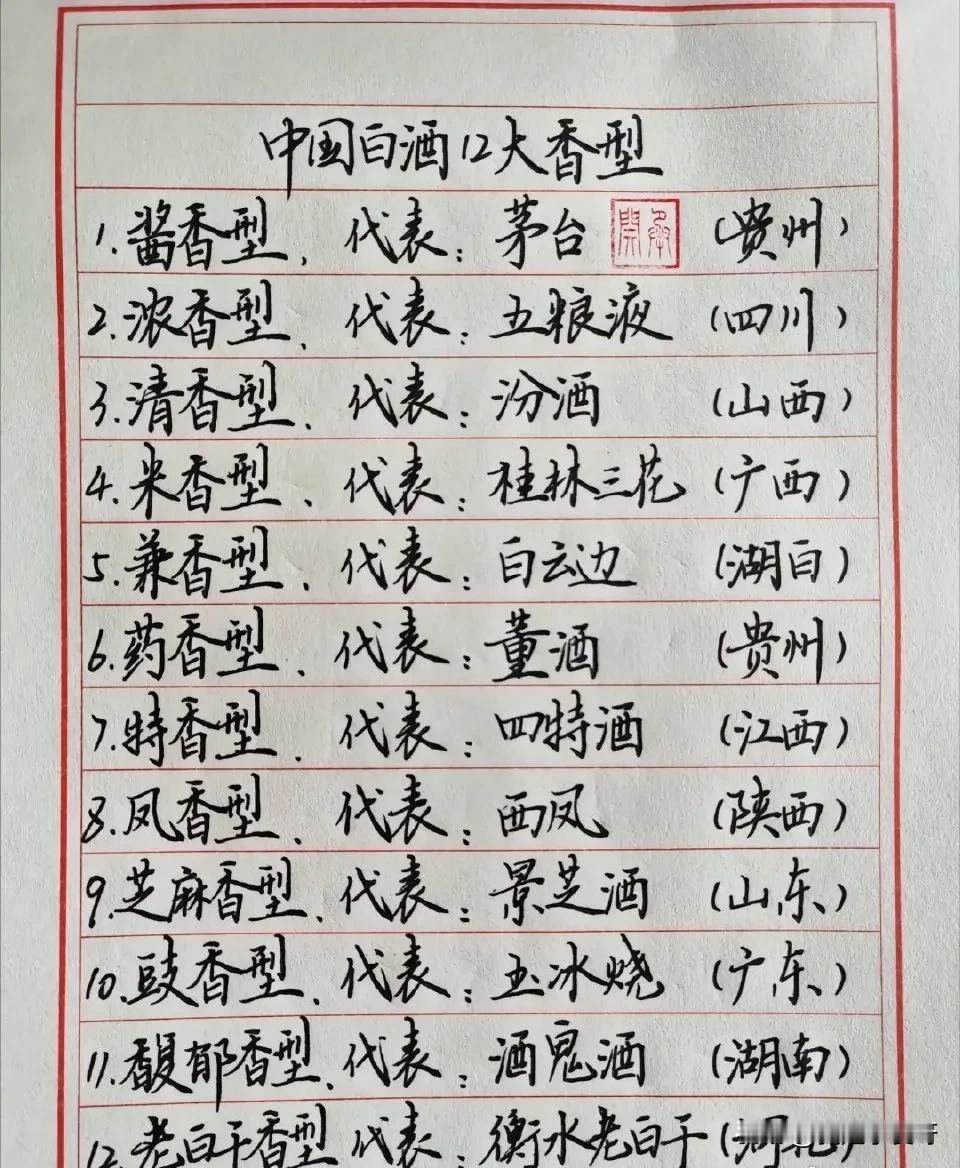 中国白酒12大香型
1.酱香型、代表：茅台（贵州）
2.浓香型、代表：五粮液（四川）
3.清香型、代表：汾酒（山西）
4.米香型、代表：桂林三花（广西）
5.兼香型、代表：白云边（湖白）
6.药香型、代表：董酒（贵州）
7.特香型、代表：四特酒（江西）
8.凤香型、代表：西凤（陕西）
9.芝麻香型、代表：景芝酒（山东）
10.豉香型、代表：玉冰烧（广东）
11.馥郁香型、代表：酒鬼酒（湖南）
12.老白干香型代表：衡水老白干（河北）